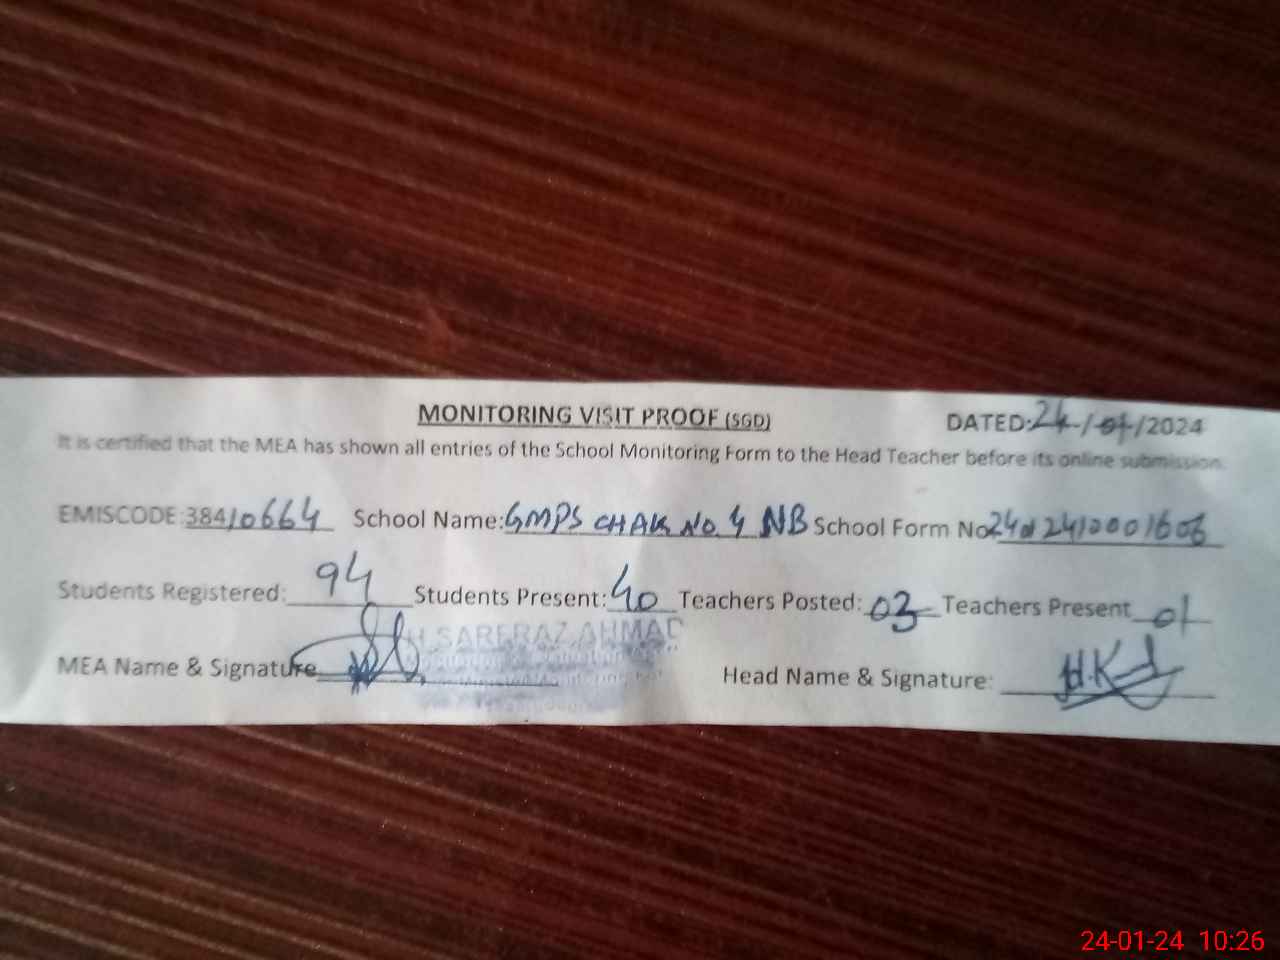 MONITORING VISIT PROOF (SGD) DATED:24/01/2024
It is certified that the MEA has shown all entries of the School Monitoring Form to the Head Teacher before its online submission.
EMISCODE:38410664 School Name:GMPS CHAK No. 4 NB School Form No 240124100001606
Students Registered: 94 Students Present: 40 Teachers Posted: 03 Teachers Present 01
SARFRAZ AHMAD
MEA Name & Signature Head Name & Signature:
24-01-24 10:26